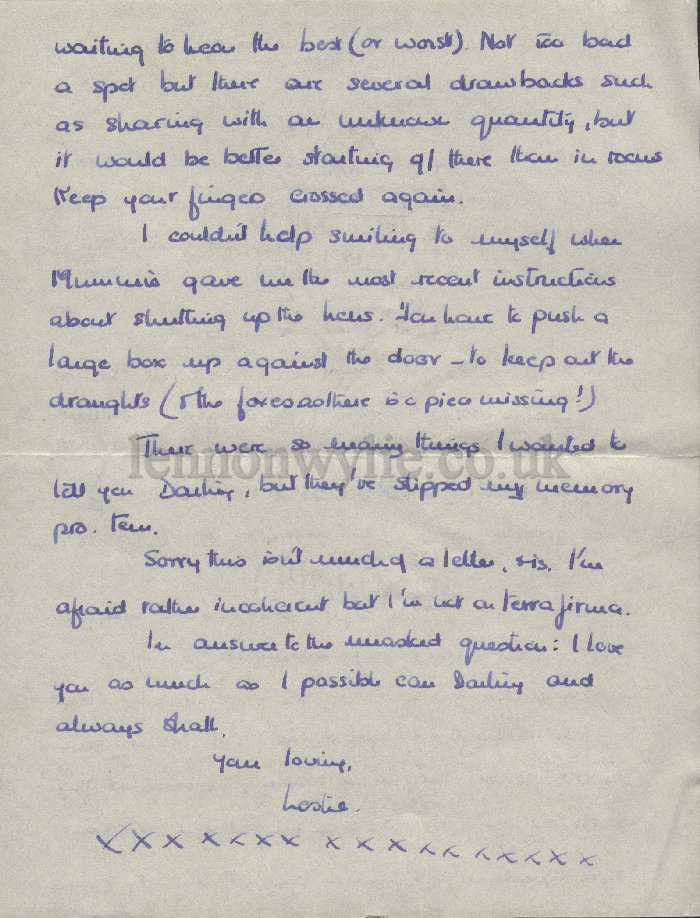 waiting to hear the best (or worst). Not too bad
a spot but there are several drawbacks such
as sharing with an unknown quantity, but
it would be better starting off there than in rooms
Keep your fingers crossed again.
I couldn't help smiling to myself when
Mummie gave me the most recent instructions
about shutting up the hens. You have to push a
large box up against the door – to keep out the
draughts (& the foxes as there is a piece missing!)
There were so many things I wanted to
lennonwylie.co.uk
tell you Darling, but they've slipped my memory
pro. tem.
Sorry this isn't much of a letter, I'm
afraid rather incoherent but I'm not on terra firma.
In answer to the unasked question: I love
you as much as I possible can Darling and
always shall.
Your loving,
Leslie.
xxx xxxx xxxxx xxxxxx